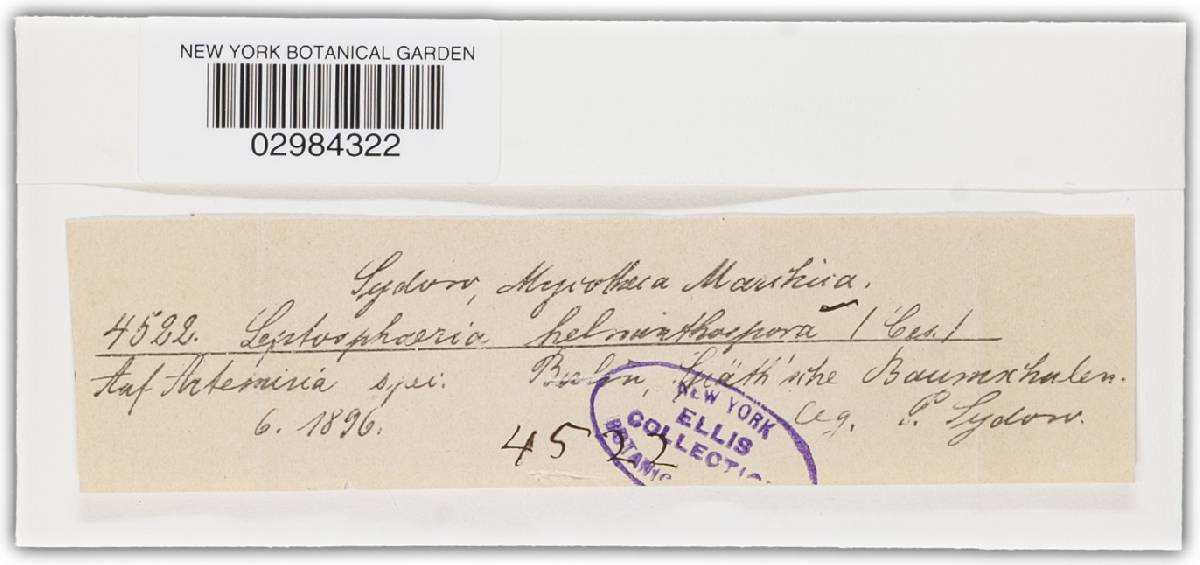 NEW YORK BOTANICAL GARDEN
02984322
Sydow, Mycotheca Marchica.
4522. Leptosphaeria helminthospora (Ces.)
Auf Artemisia spei. Berlin, Späth'sche Baumschulen.
6. 1896. leg. P. Sydow.
4522
NEW YORK
ELLIS
COLLECTIO
BOTANIC